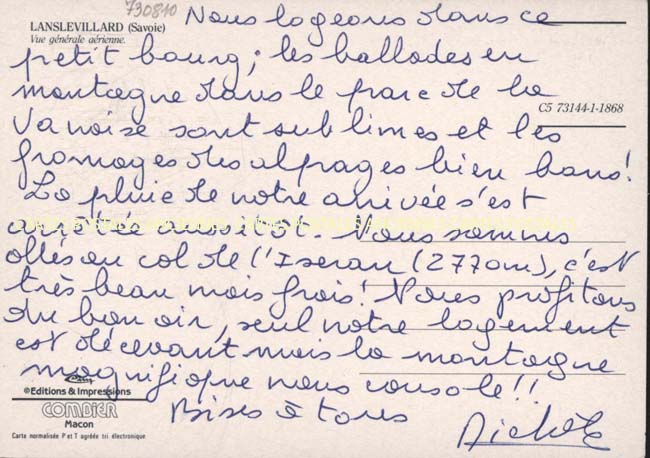 730810
LANSLEVILLARD (Savoie)
Vue générale aérienne.
C5 73144-1-1868
Nous logeons dans ce
petit bourg; les ballades en
montagne dans le parc de la
Vanoise sont sublimes et les
fromages des alpages bien bons!
La pluie de notre arrivée s'est
arrêtée aussitôt. Nous sommes
allés au col de l'Iseran (2770m), c'est
très beau mais frois! Nous profitons
du bon air, seul notre logement
est décevant mais la montagne
magnifique nous console!!
Bises à tous
Michèle
©Editions & Impressions
COMBIER
Macon
Carte normalisée P et T agréée tri électronique